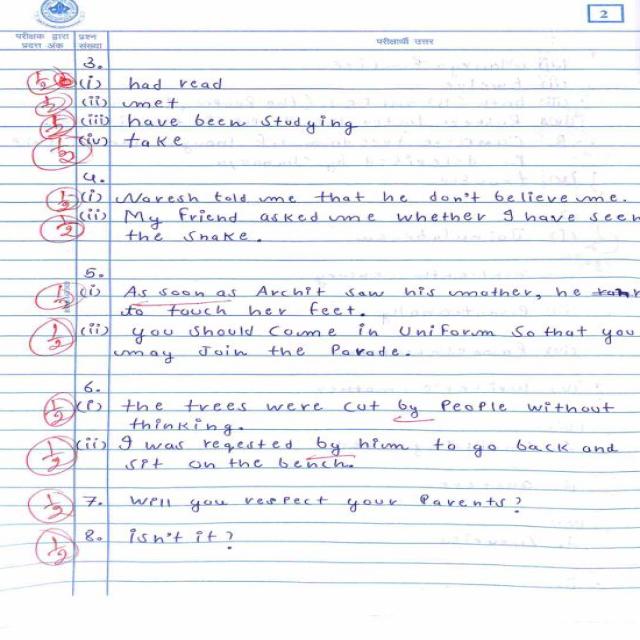 2
परीक्षक द्वारा प्रदत्त अंक
प्रश्न संख्या
परीक्षार्थी उत्तर
3.
1/2 (i) had read
1/2 (ii) met
1/2 (iii) have been studying
1/2 (iv) take
4.
1/2 (i) Naresh told me that he don't believe me.
1/2 (ii) My friend asked me whether I have seen
the snake.
5.
1/2 (i) As soon as Archit saw his mother, he
to touch her feet.
1/2 (ii) you should come in Uniform so that you
may Join the Parade.
6.
1/2 (i) the trees were cut by People without
thinking.
1/2 (ii) I was reqested by him to go back and
sit on the bench.
1/2 7. Will you respect your Parents?
1/2 8. isn't it?